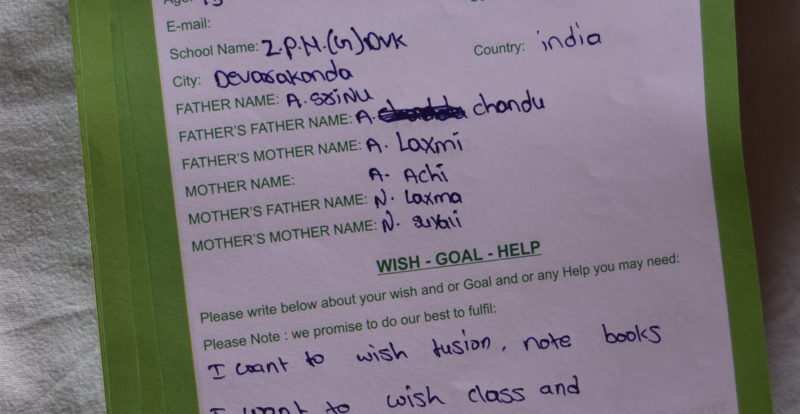 E-mail:
School Name: Z.P.H.(G) DVK
Country: india
City: Devarakonda
FATHER NAME: A. Srinu
FATHER'S FATHER NAME: A. chandu
FATHER'S MOTHER NAME: A. Laxmi
MOTHER NAME: A. Achi
MOTHER'S FATHER NAME: N. Laxma
MOTHER'S MOTHER NAME: N.
WISH - GOAL - HELP
Please write below about your wish and or Goal and or any Help you may need:
Please Note : we promise to do our best to fulfil:
I want to wish tusion, note books
I want to wish class and